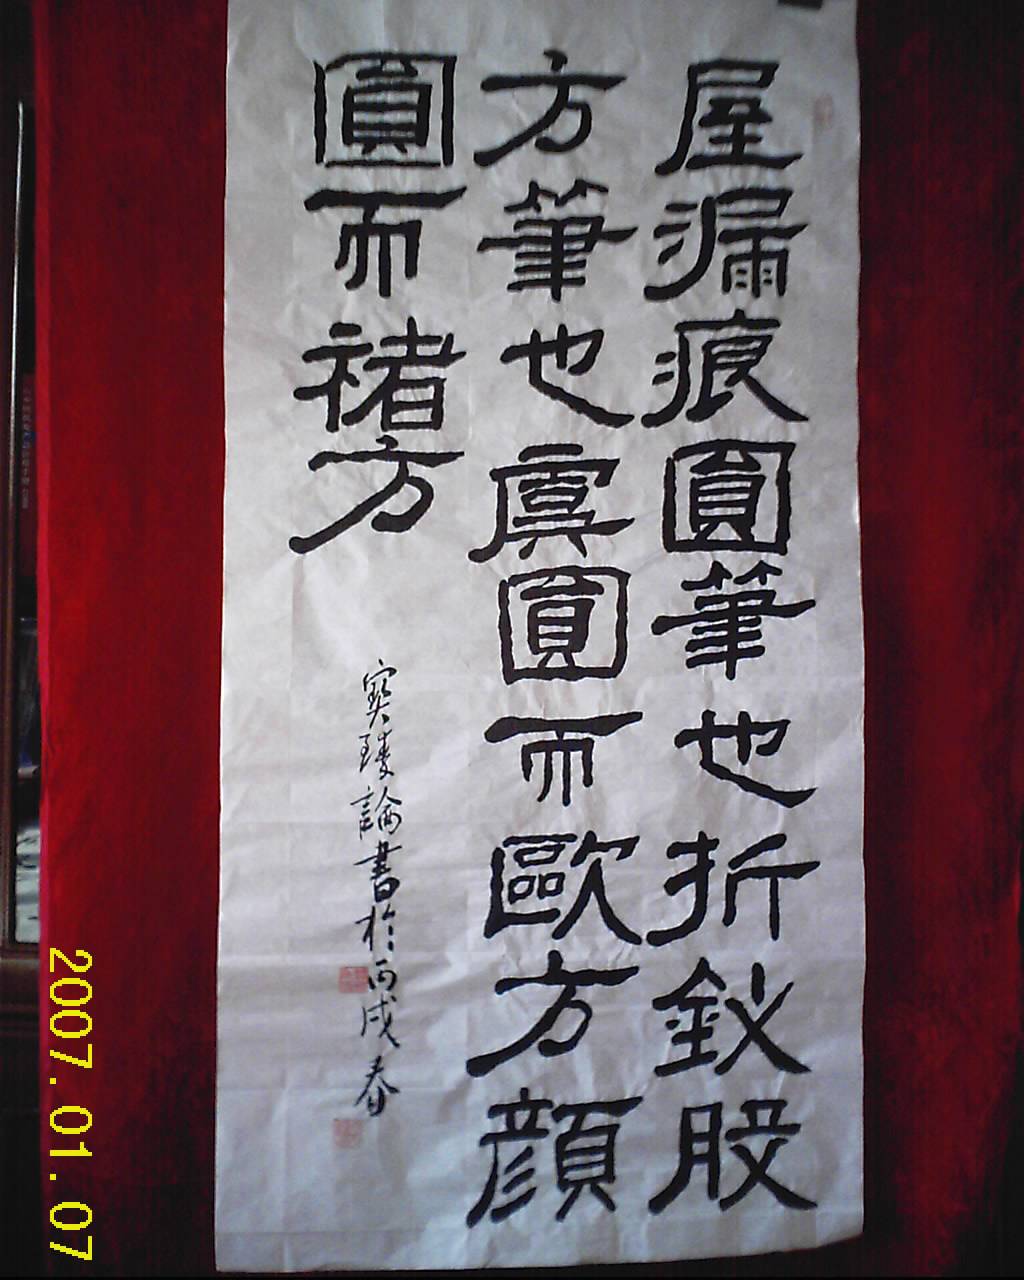 屋漏痕圓筆也折釵股
方筆也虞圓而歐方顏
圓而褚方
寳琭論書於丙戌春
2007.01.07